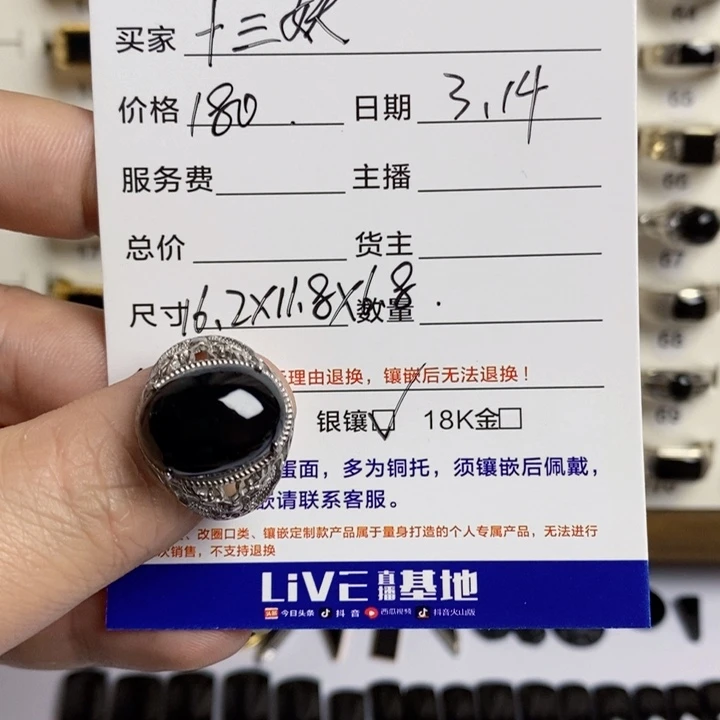 买家 十三妖
价格 180. 日期 3.14
服务费 主播
总价 货主
尺寸 16.2X11.8X6.8. 数量
理由退换，镶嵌后无法退换！
银镶 18K金
蛋面，多为铜托，须镶嵌后佩戴，
请联系客服。
、改圈口类、镶嵌定制款产品属于量身打造的个人专属产品，无法进行
销售，不支持退换
LiVE 直播 基地
头条 今日头条 抖音 西瓜视频 抖音火山版
64
65
66
67
68
69